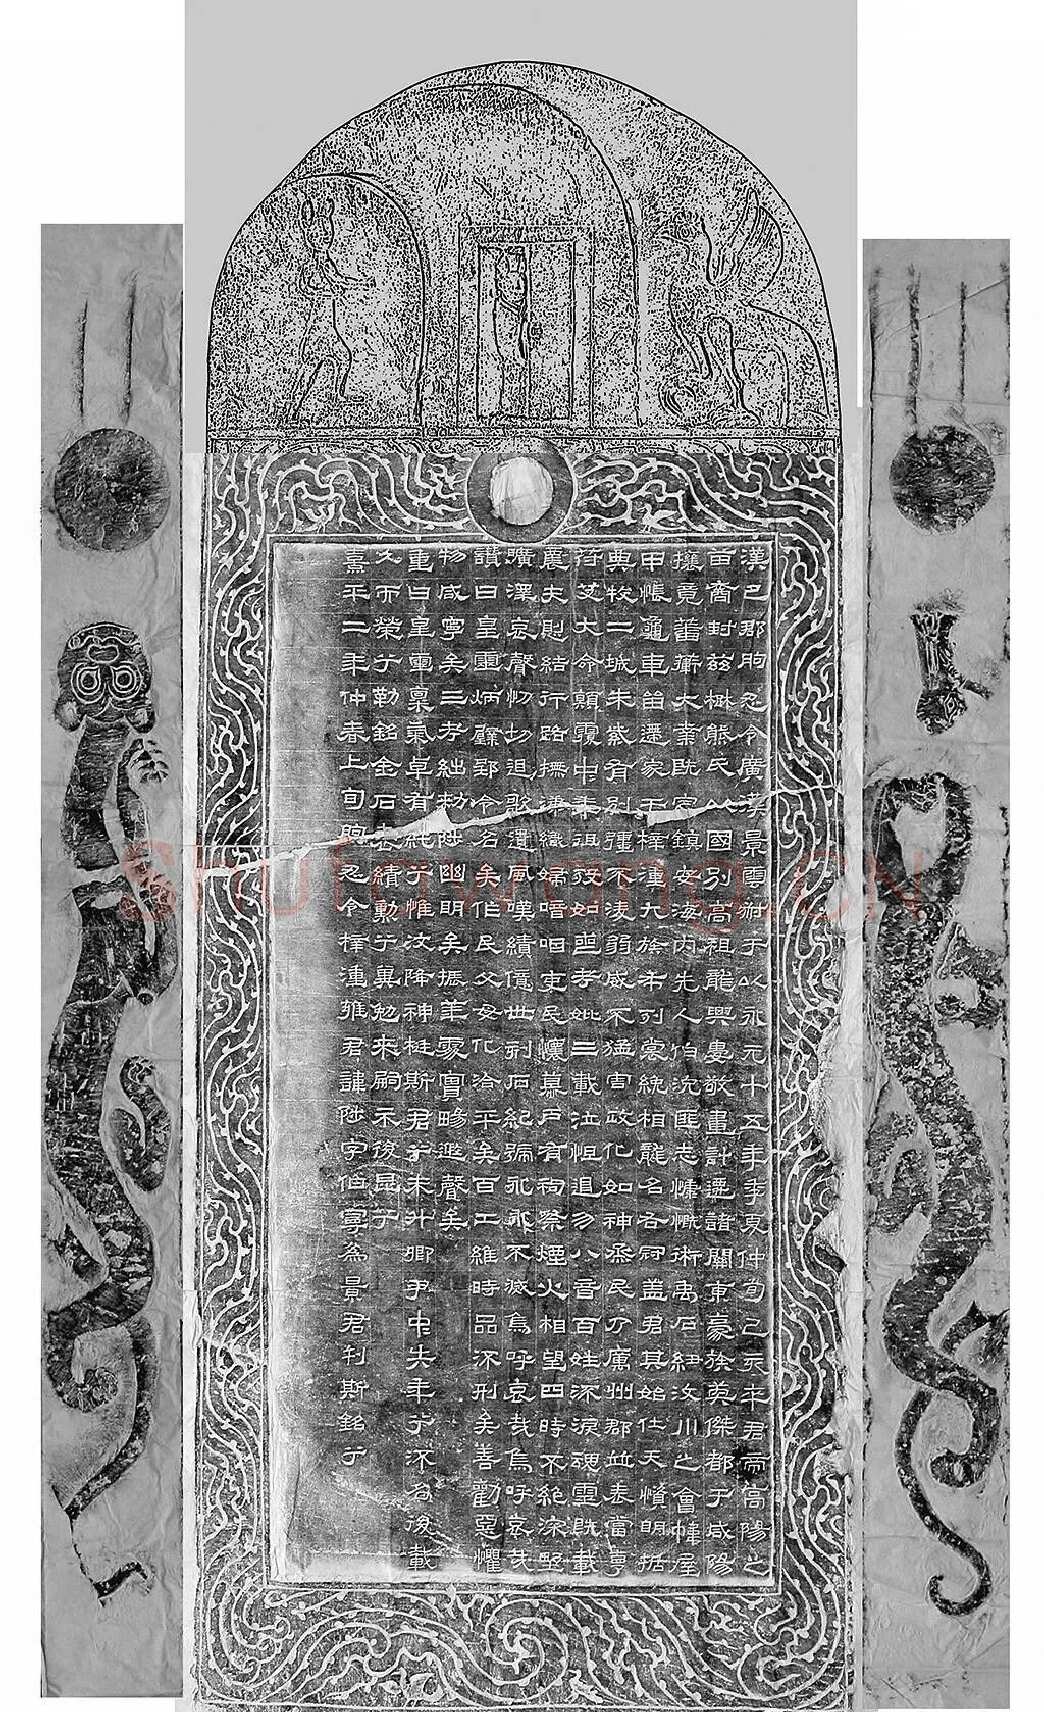 漢巴郡朐忍令廣漢景雲叔于以永元十五年季夏仲旬己亥卒君帝高陽之
苗裔封茲楚熊氏以國別高祖龍興婁敬畫計遷諸關東豪族英傑都于咸陽
攘竟蕃衛大業既定鎮安海內先人伯沇匪志慷慨術禹石紐汶川之會幃屋
甲帳龜車留遷家于梓潼九族布列裳絻相襲名右冠蓋君其始仕天資明括
典牧二城朱紫有別強不淩弱威不猛害政化如神蒸民乃厲州郡並表當享
符艾大命顛覆中年徂歿如喪考妣三載泣怛退勿八音百姓流淚魂靈既載
農夫惻結行路撫涕織婦喑咽吏民懷慕戶有祠祭煙火相望四時不絕深野
曠澤哀聲忉切追歌遺風嘆績億世刻石紀號永永不滅烏呼哀哉烏呼哀哉
讚曰皇靈炳璧郢令名矣作民父母化洽平矣百工維時品流刑矣善勸惡懼
物咸寧矣三考絀敕陟幽明矣振華處實暘遐聲矣
重曰皇靈稟氣卓有純兮惟汶降神梃斯君兮未升卿尹中失年兮流名後載
久而榮兮勒銘金石表績勳兮冀勉來嗣示後昆兮
熹平二年仲春上旬朐忍令梓潼雍君諱陟字伯寧為景君刊斯銘兮
Shufawang.CN